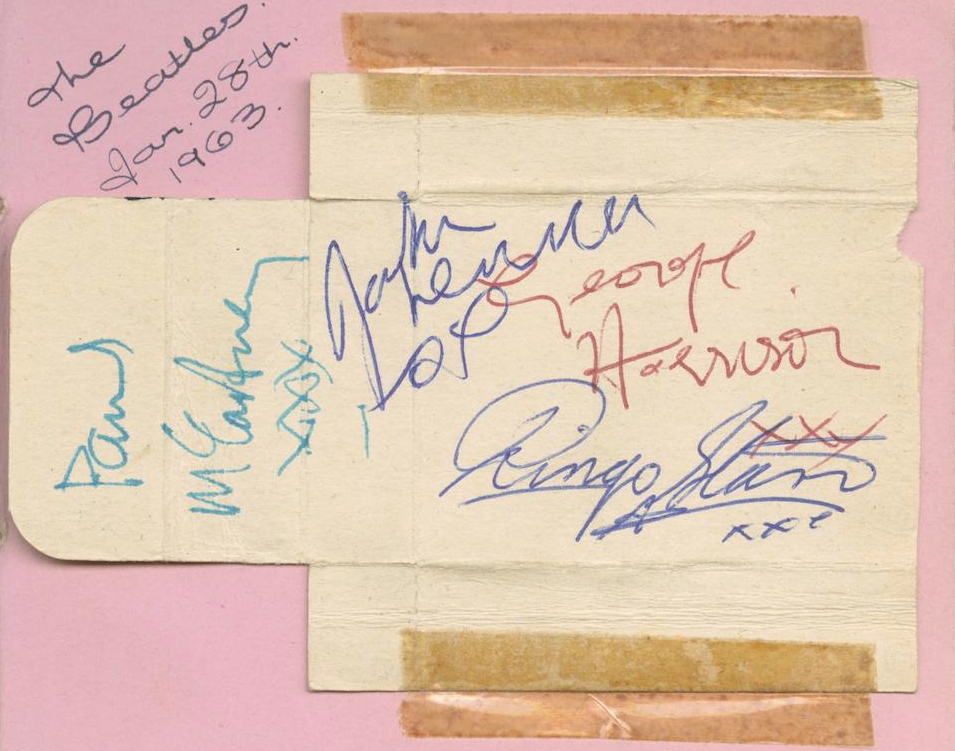 The
Beatles.
Jan. 28th.
1963.
Paul
McCartney
xxx
John
Lennon
George
Harrison
xxx
Ringo Starr
xxx